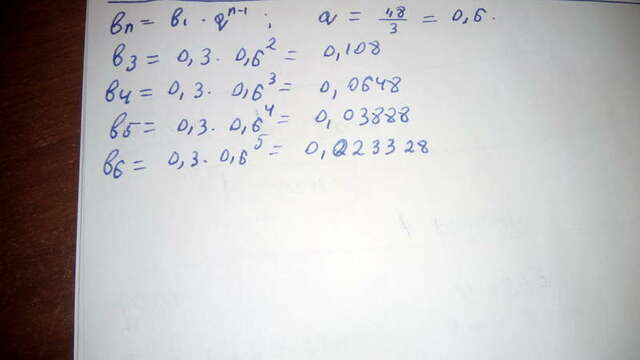 bn = b1 · q^n-1 ; q = 1,8/3 = 0,6.
b3 = 0,3 · 0,6^2 = 0,108
b4 = 0,3 · 0,6^3 = 0,0648
b5 = 0,3 · 0,6^4 = 0,03888
b6 = 0,3 · 0,6^5 = 0,023328